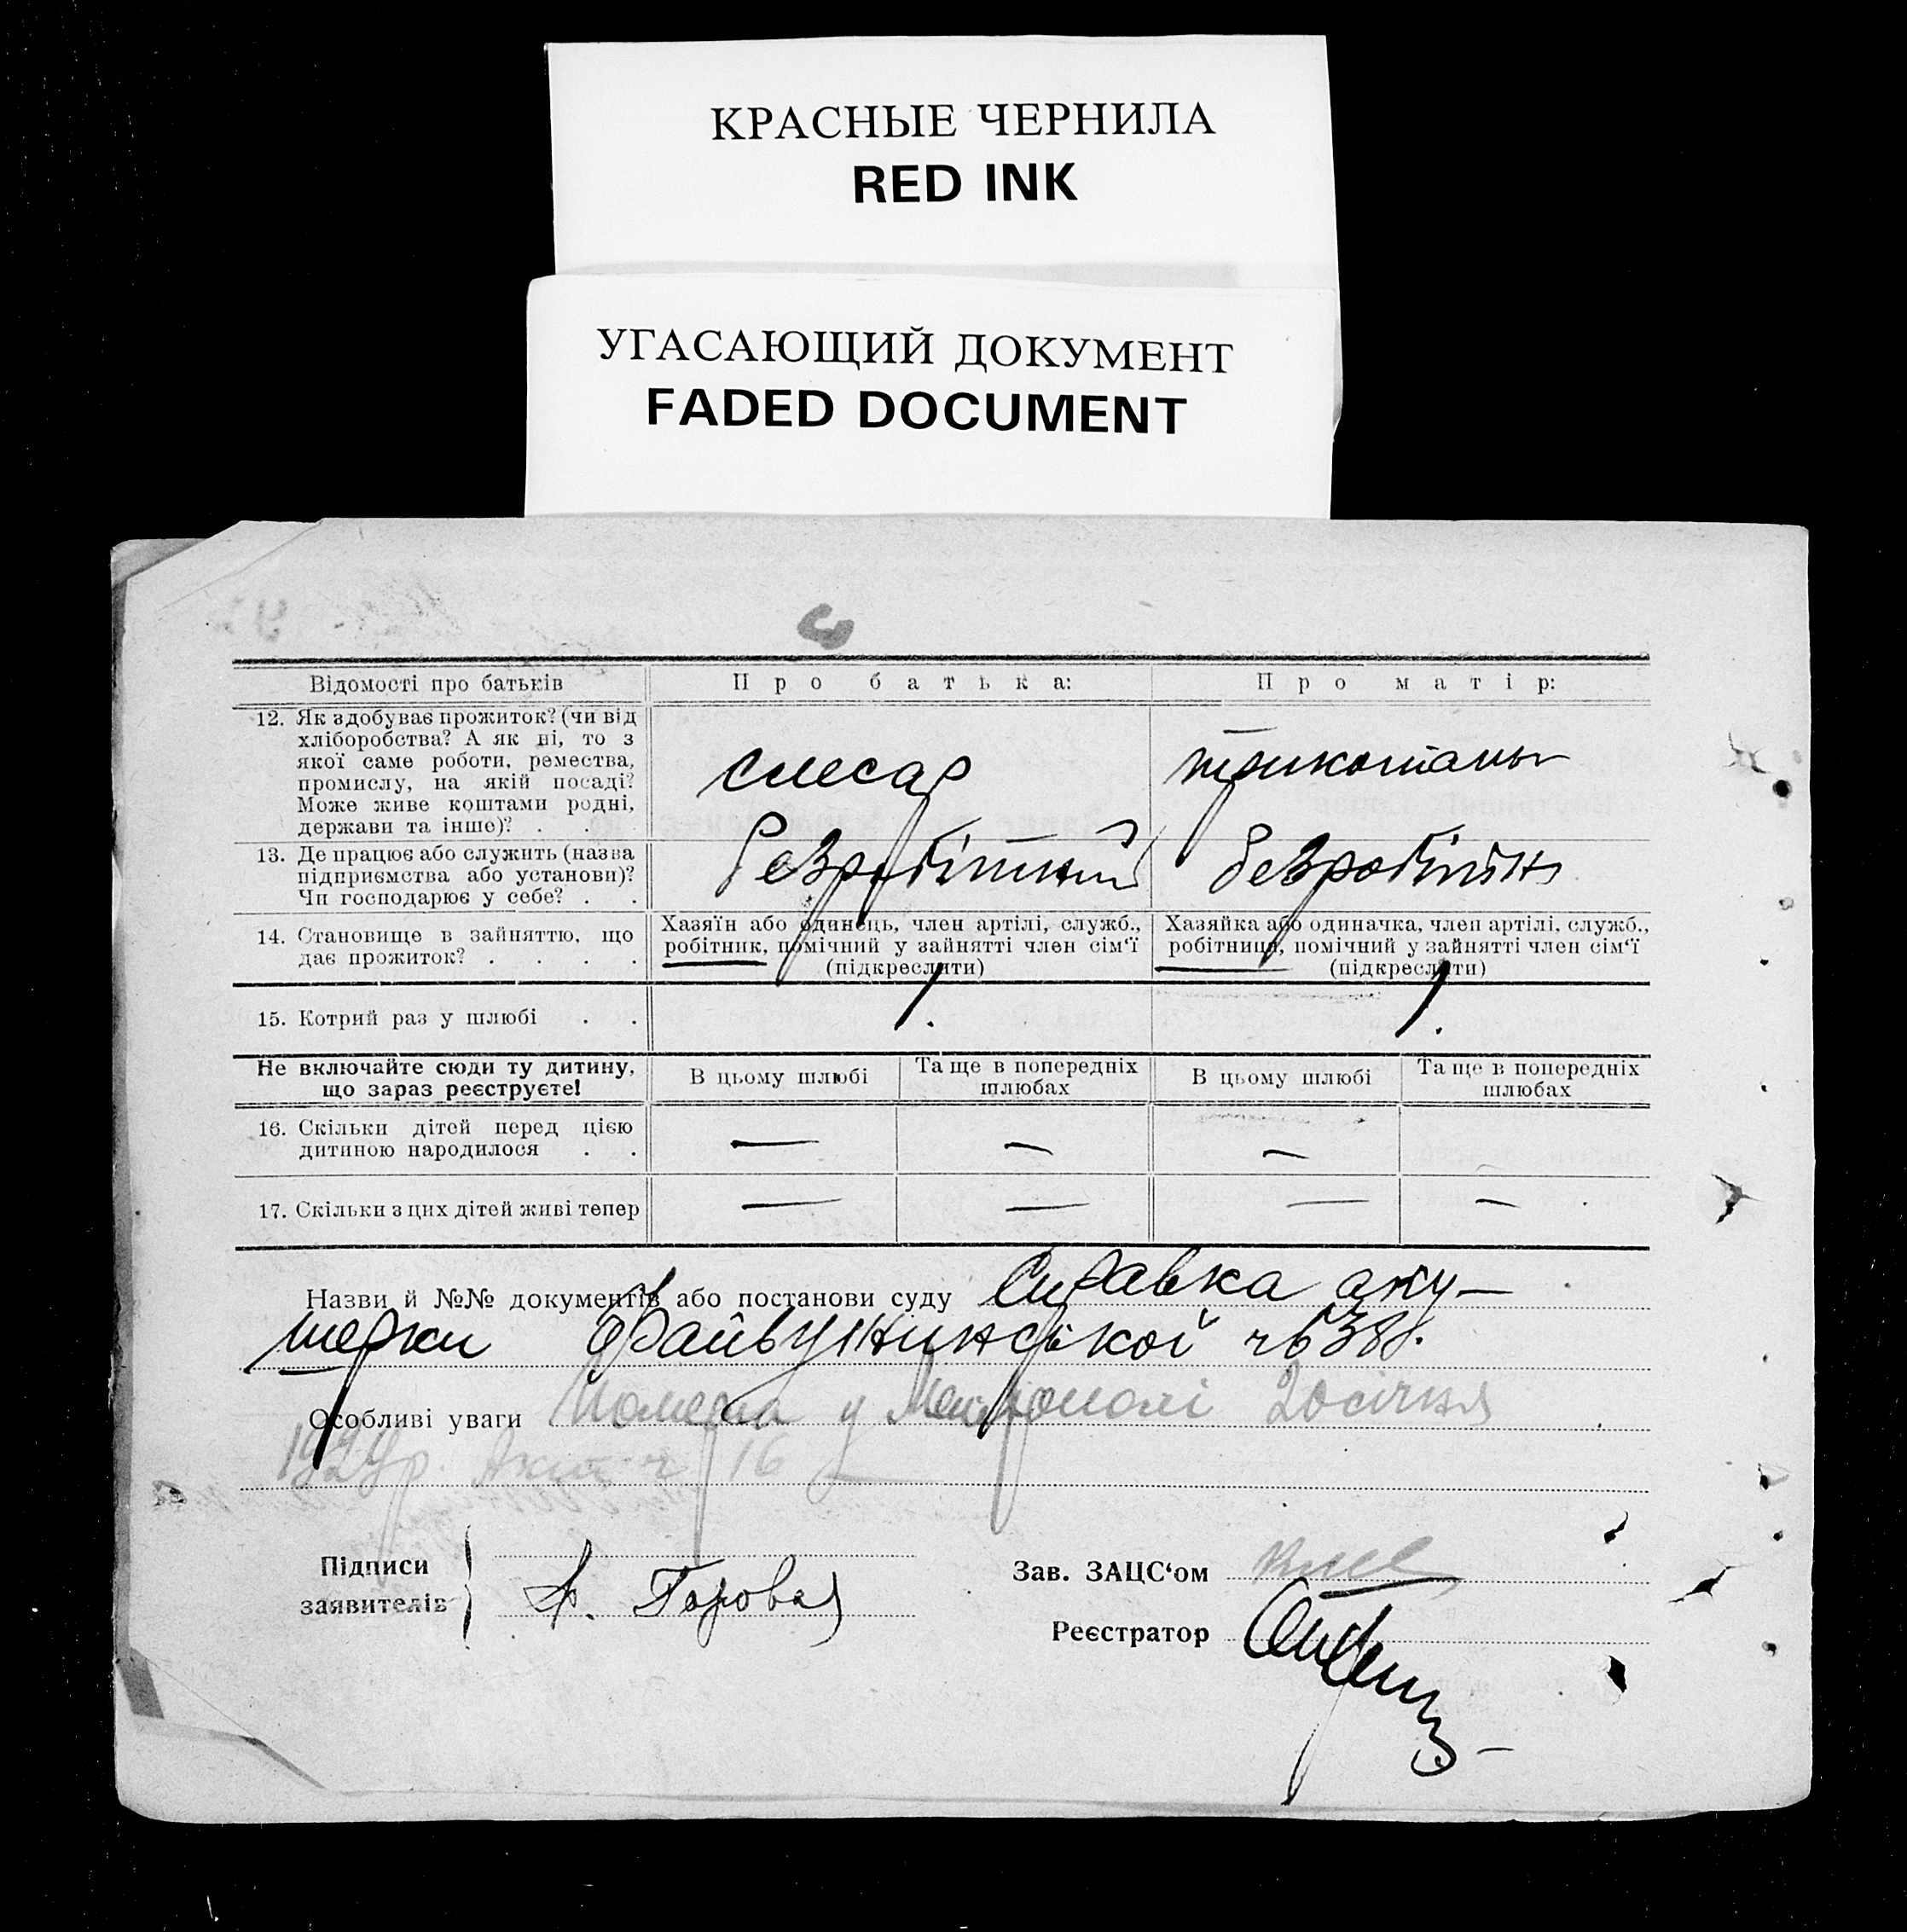 КРАСНЫЕ ЧЕРНИЛА
RED INK
УГАСАЮЩИЙ ДОКУМЕНТ
FADED DOCUMENT
Відомості про батьків
Про батька:
Про матір:
12. Як здобуває прожиток? (чи від
хліборобства? А як ні, то з
якої саме роботи, ремества,
промислу, на якій посаді?
Може живе коштами родні,
держави та інше)? . . .
слесар
13. Де працює або служить (назва
підприємства або установи)?
Чи господарює у себе? . .
безробітний
безробітн
14. Становище в зайняттю, що
дає прожиток? . . . .
Хазяїн або одинець, член артілі, служб.,
робітник, помічний у зайнятті член сім'ї
(підкреслити)
Хазяйка або одиначка, член артілі, служб.,
робітниця, помічний у зайнятті член сім'ї
(підкреслити)
15. Котрий раз у шлюбі . .
1.
1.
Не включайте сюди ту дитину,
що зараз реєструєте!
В цьому шлюбі
Та ще в попередніх
шлюбах
В цьому шлюбі
Та ще в попередніх
шлюбах
16. Скільки дітей перед цією
дитиною народилося . .
— — —
17. Скільки з цих дітей живі тепер
— — — —
Назви й №№ документів або постанови суду Справка аку-
шерки ч 638
Особливі уваги Померла у 20 січня
192 р. Акт ч 16
Підписи
заявителів
Зав. ЗАЦС'ом
Реєстратор